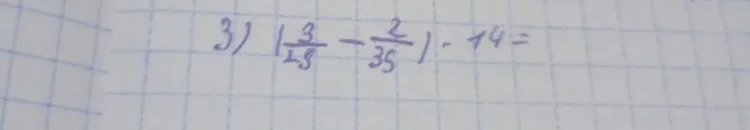 3) (3/25 - 2/35) · 14 =